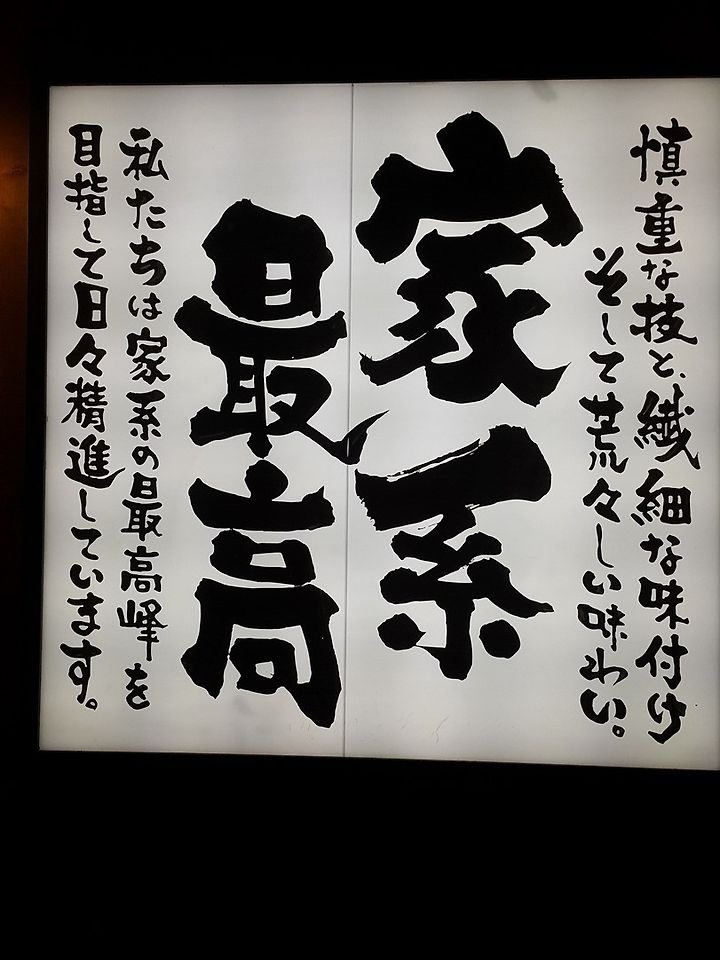 慎重な技と、繊細な味付け
そして荒々しい味わい。
家系
最高
私たちは家系の最高峰を
目指して日々精進しています。